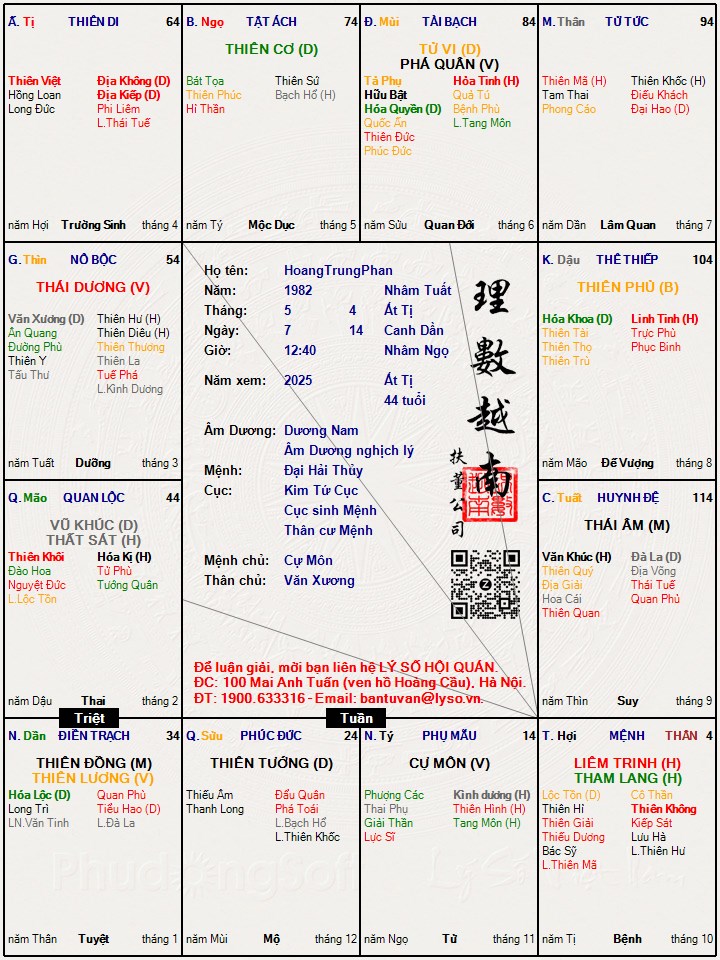 Ấ. Tị THIÊN DI 64
Thiên Việt Địa Không (D)
Hồng Loan Địa Kiếp (D)
Long Đức Phi Liêm
L.Thái Tuế
năm Hợi Trường Sinh tháng 4
B. Ngọ TẬT ÁCH 74
THIÊN CƠ (D)
Bát Tọa Thiên Sứ
Thiên Phúc Bạch Hổ (H)
Hỉ Thần
năm Tý Mộc Dục tháng 5
Đ. Mùi TÀI BẠCH 84
TỬ VI (D)
PHÁ QUÂN (V)
Tả Phụ Hỏa Tinh (H)
Hữu Bật Quả Tú
Hóa Quyền (D) Bệnh Phù
Quốc Ấn L.Tang Môn
Thiên Đức
Phúc Đức
năm Sửu Quan Đới tháng 6
M. Thân TỬ TỨC 94
Thiên Mã (H) Thiên Khốc (H)
Tam Thai Điếu Khách
Phong Cáo Đại Hao (D)
năm Dần Lâm Quan tháng 7
G. Thìn NÔ BỘC 54
THÁI DƯƠNG (V)
Văn Xương (D) Thiên Hư (H)
Ân Quang Thiên Diêu (H)
Đường Phù Thiên Thương
Thiên Y Thiên La
Tấu Thư Tuế Phá
L.Kình Dương
năm Tuất Dưỡng tháng 3
Họ tên: HoangTrungPhan
Năm: 1982 Nhâm Tuất
Tháng: 5 4 Ất Tị
Ngày: 7 14 Canh Dần
Giờ: 12:40 Nhâm Ngọ
Năm xem: 2025 Ất Tị
44 tuổi
Âm Dương: Dương Nam
Âm Dương nghịch lý
Mệnh: Đại Hải Thủy
Cục: Kim Tứ Cục
Cục sinh Mệnh
Thân cư Mệnh
Mệnh chủ: Cự Môn
Thân chủ: Văn Xương
理數越南
扶董公司
Để luận giải, mời bạn liên hệ LÝ SỐ HỘI QUÁN.
ĐC: 100 Mai Anh Tuấn (ven hồ Hoàng Cầu), Hà Nội.
ĐT: 1900.633316 - Email: bantuvan@lyso.vn.
K. Dậu THÊ THIẾP 104
THIÊN PHỦ (B)
Hóa Khoa (D) Linh Tinh (H)
Thiên Tài Trực Phù
Thiên Thọ Phục Binh
Thiên Trù
năm Mão Đế Vượng tháng 8
Q. Mão QUAN LỘC 44
VŨ KHÚC (D)
THẤT SÁT (H)
Thiên Khôi Hóa Kị (H)
Đào Hoa Tử Phù
Nguyệt Đức Tướng Quân
L.Lộc Tồn
năm Dậu Thai tháng 2
C. Tuất HUYNH ĐỆ 114
THÁI ÂM (M)
Văn Khúc (H) Đà La (D)
Thiên Quý Địa Võng
Địa Giải Thái Tuế
Hoa Cái Quan Phủ
Thiên Quan
năm Thìn Suy tháng 9
Triệt
Tuần
N. Dần ĐIỀN TRẠCH 34
THIÊN ĐỒNG (M)
THIÊN LƯƠNG (V)
Hóa Lộc (D) Quan Phù
Long Trì Tiểu Hao (D)
LN.Văn Tinh L.Đà La
năm Thân Tuyệt tháng 1
Q. Sửu PHÚC ĐỨC 24
THIÊN TƯỚNG (D)
Thiếu Âm Đẩu Quân
Thanh Long Phá Toái
L.Bạch Hổ
L.Thiên Khốc
năm Mùi Mộ tháng 12
N. Tý PHỤ MẪU 14
CỰ MÔN (V)
Phượng Các Kình dương (H)
Thai Phụ Thiên Hình (H)
Giải Thần Tang Môn (H)
Lực Sĩ
năm Ngọ Tử tháng 11
T. Hợi MỆNH THÂN 4
LIÊM TRINH (H)
THAM LANG (H)
Lộc Tồn (D) Cô Thần
Thiên Hỉ Thiên Không
Thiên Giải Kiếp Sát
Thiếu Dương Lưu Hà
Bác Sỹ L.Thiên Hư
L.Thiên Mã
năm Tị Bệnh tháng 10